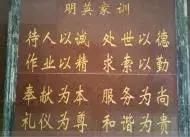 明英家训
待人以诚 处世以德
作业以精 求索以勤
奉献为本 服务为尚
礼仪为尊 和谐为贵